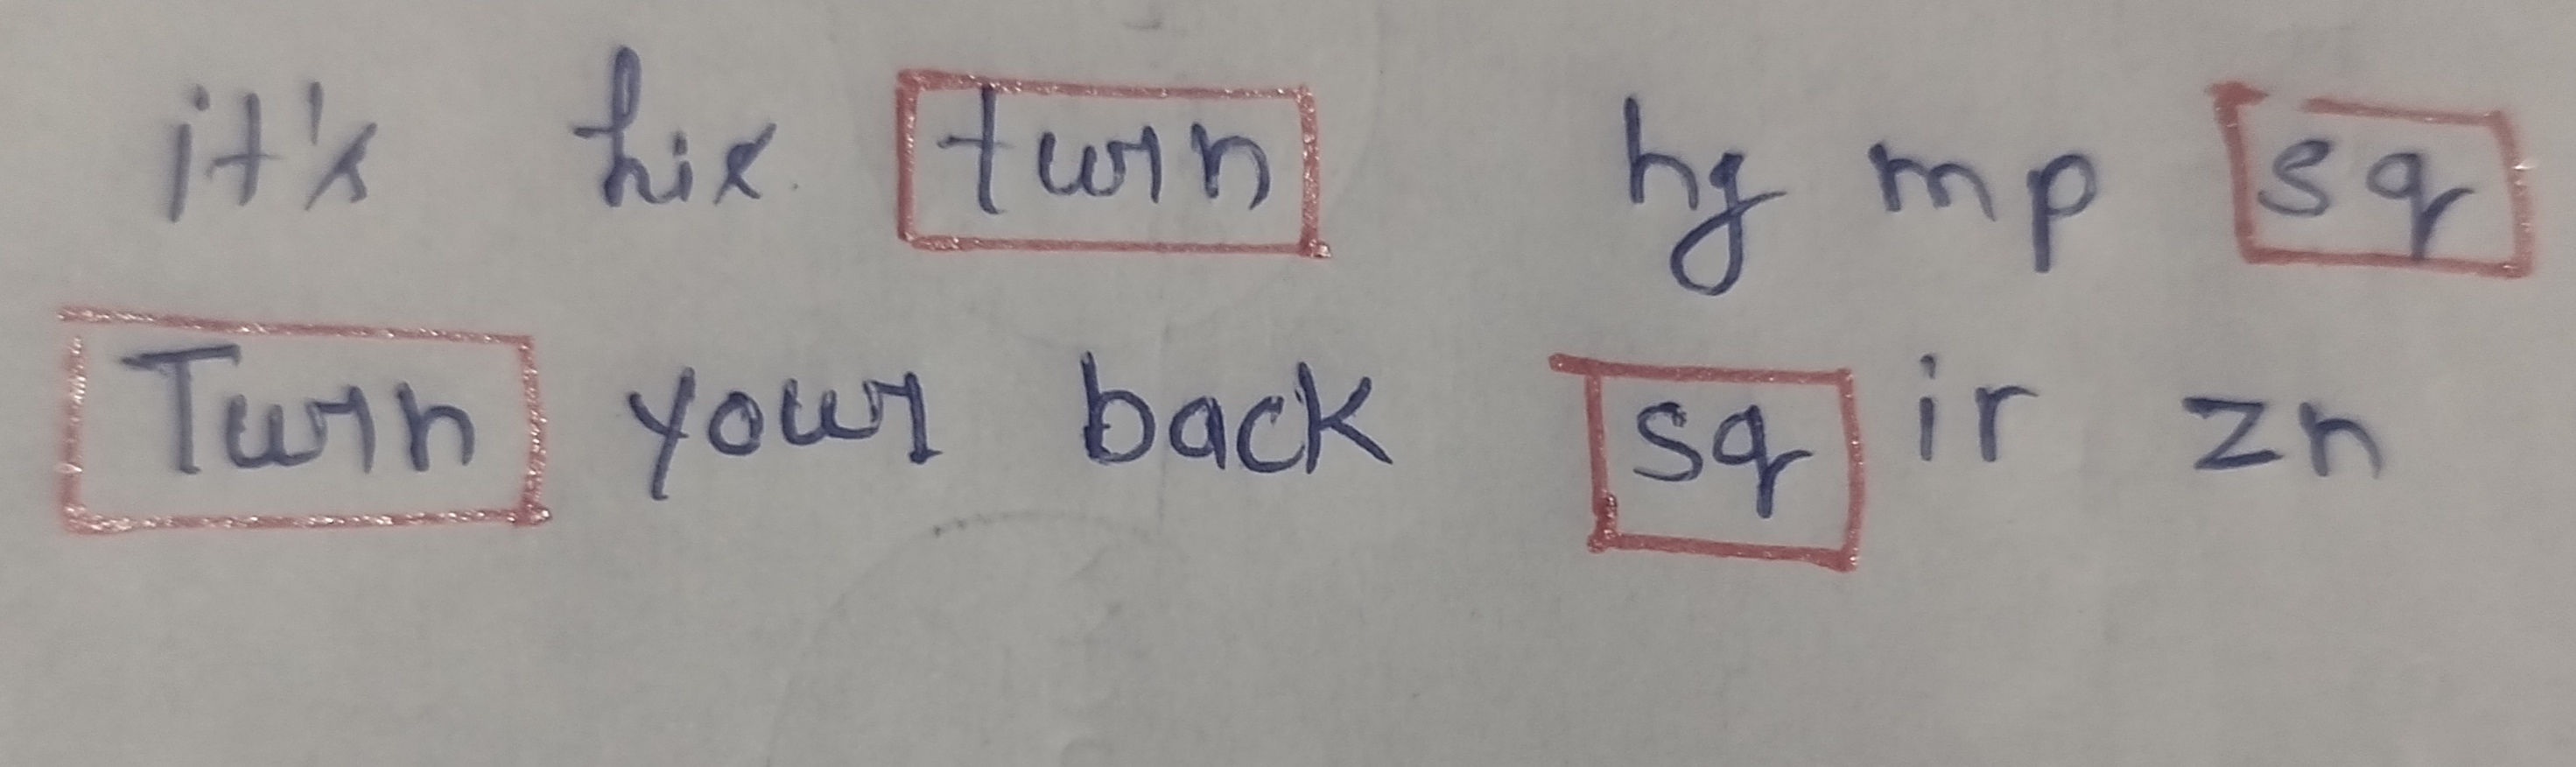 it's his turn hg mp sq
Turn your back sq ir zn